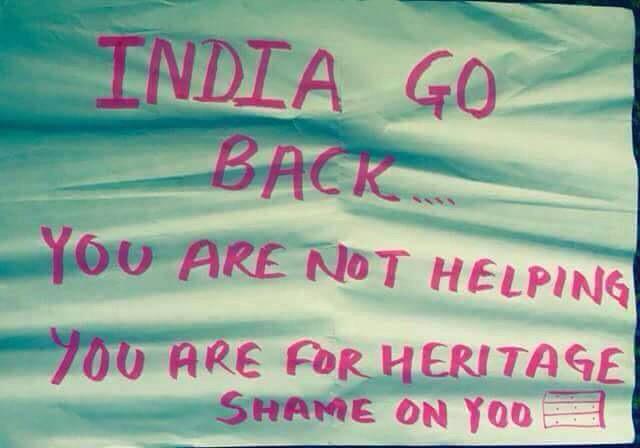 INDIA GO
BACK....
YOU ARE NOT HELPING
YOU ARE FOR HERITAGE
SHAME ON YOO